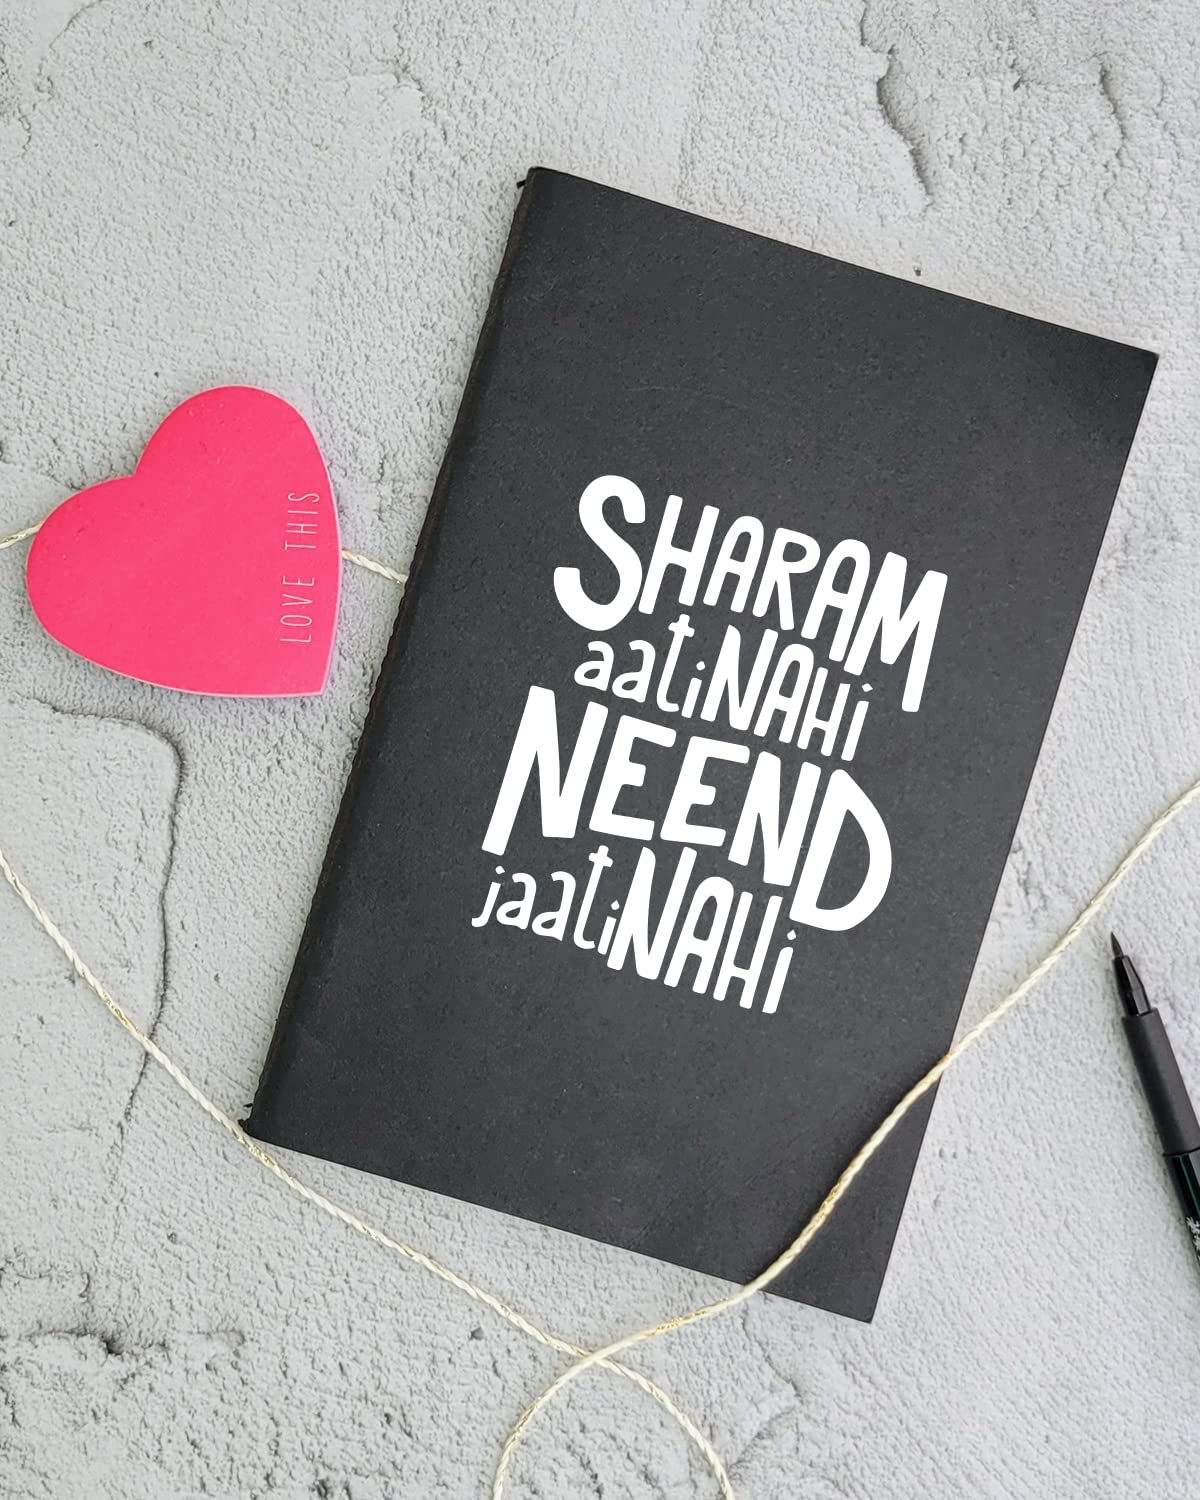 LOVE THIS
SHARAM
aatiNAHi
NEEND
jaatiNAHi